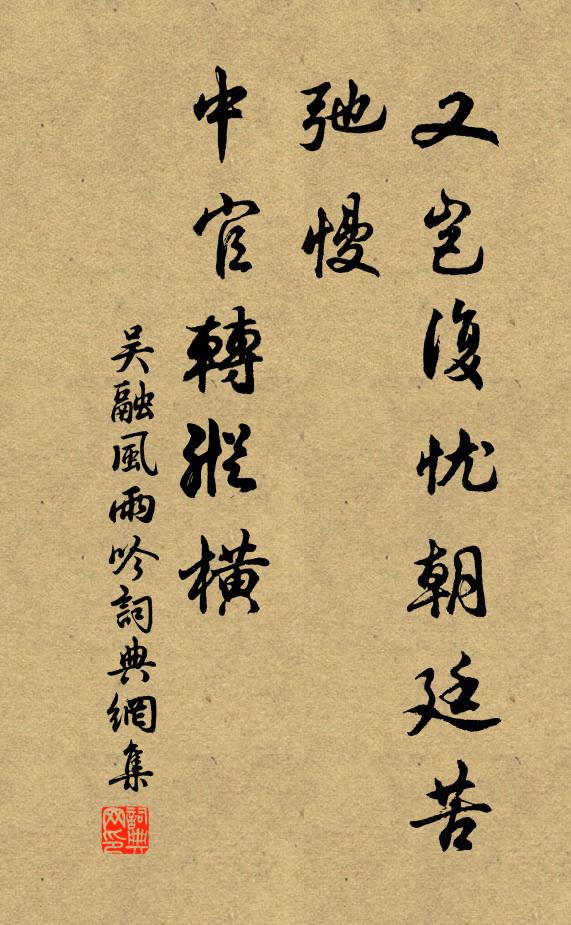 又岂復忧朝廷苦
弛慢
中官轉縱橫
吴融風雨吟詞典網集
詞典网印